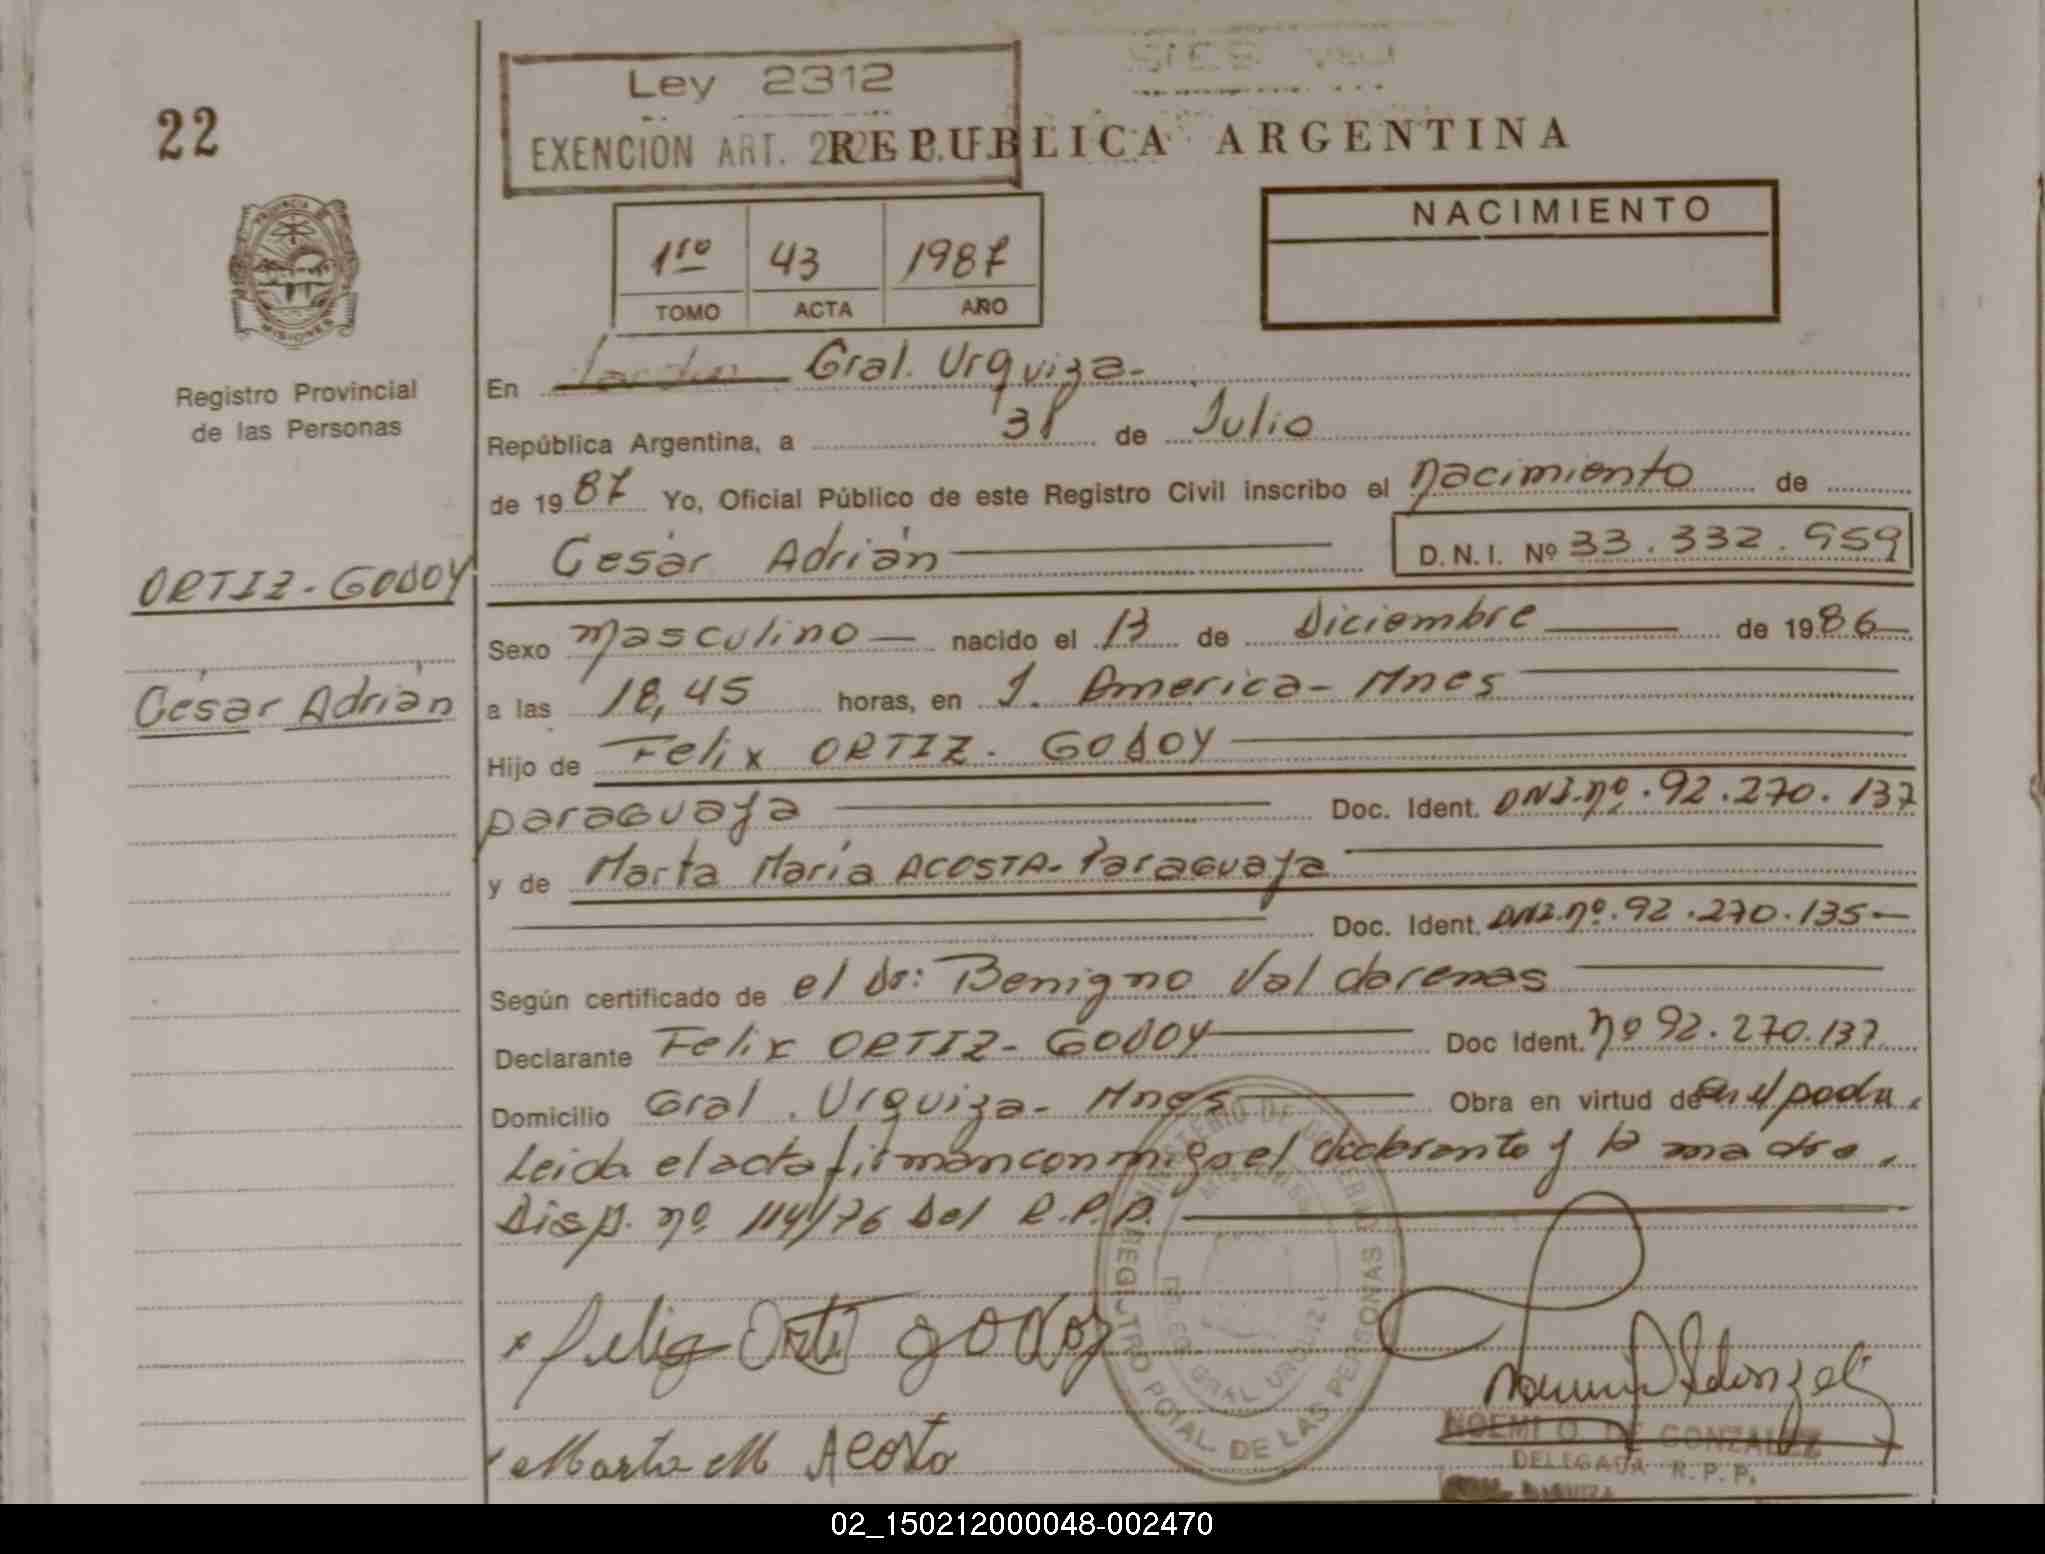 Ley 2312
EXENCIÓN ART. 22
22
REPUBLICA ARGENTINA
NACIMIENTO
1ro 43 1987
TOMO ACTA AÑO
PROVINCIA DE MISIONES
Registro Provincial
de las Personas
En Gral. Urquiza-
República Argentina, a 31 de Julio
de 1987 Yo, Oficial Público de este Registro Civil inscribo el Nacimiento de
César Adrián D.N.I. Nº 33.332.959
ORTIZ-GODOY
César Adrián
Sexo Masculino nacido el 13 de Diciembre de 1986
a las 18,45 horas, en J. America- Mnes
Hijo de Felix ORTIZ- GODOY
paraguaya Doc. Ident. DNI.nº.92.270.137
y de Marta María ACOSTA- Paraguaya
Doc. Ident. DNI.nº.92.270.135-
Según certificado de el Dr: Benigno Val darenas
Declarante Felix ORTIZ- GODOY Doc Ident. nº 92.270.137
Domicilio Gral. Urquiza- Mnes Obra en virtud de
Leida el acta firman conmigo el declarante y la madre.
Disp. nº 114/76 del R.P.P.
x Felix Orti godoy
Marta M Acosta
REGISTRO PCIAL. DE LAS PERSONAS
GRAL URQUIZA
NOEMI O. DE GONZALEZ
DELEGADA R.P.P.
02_150212000048-002470